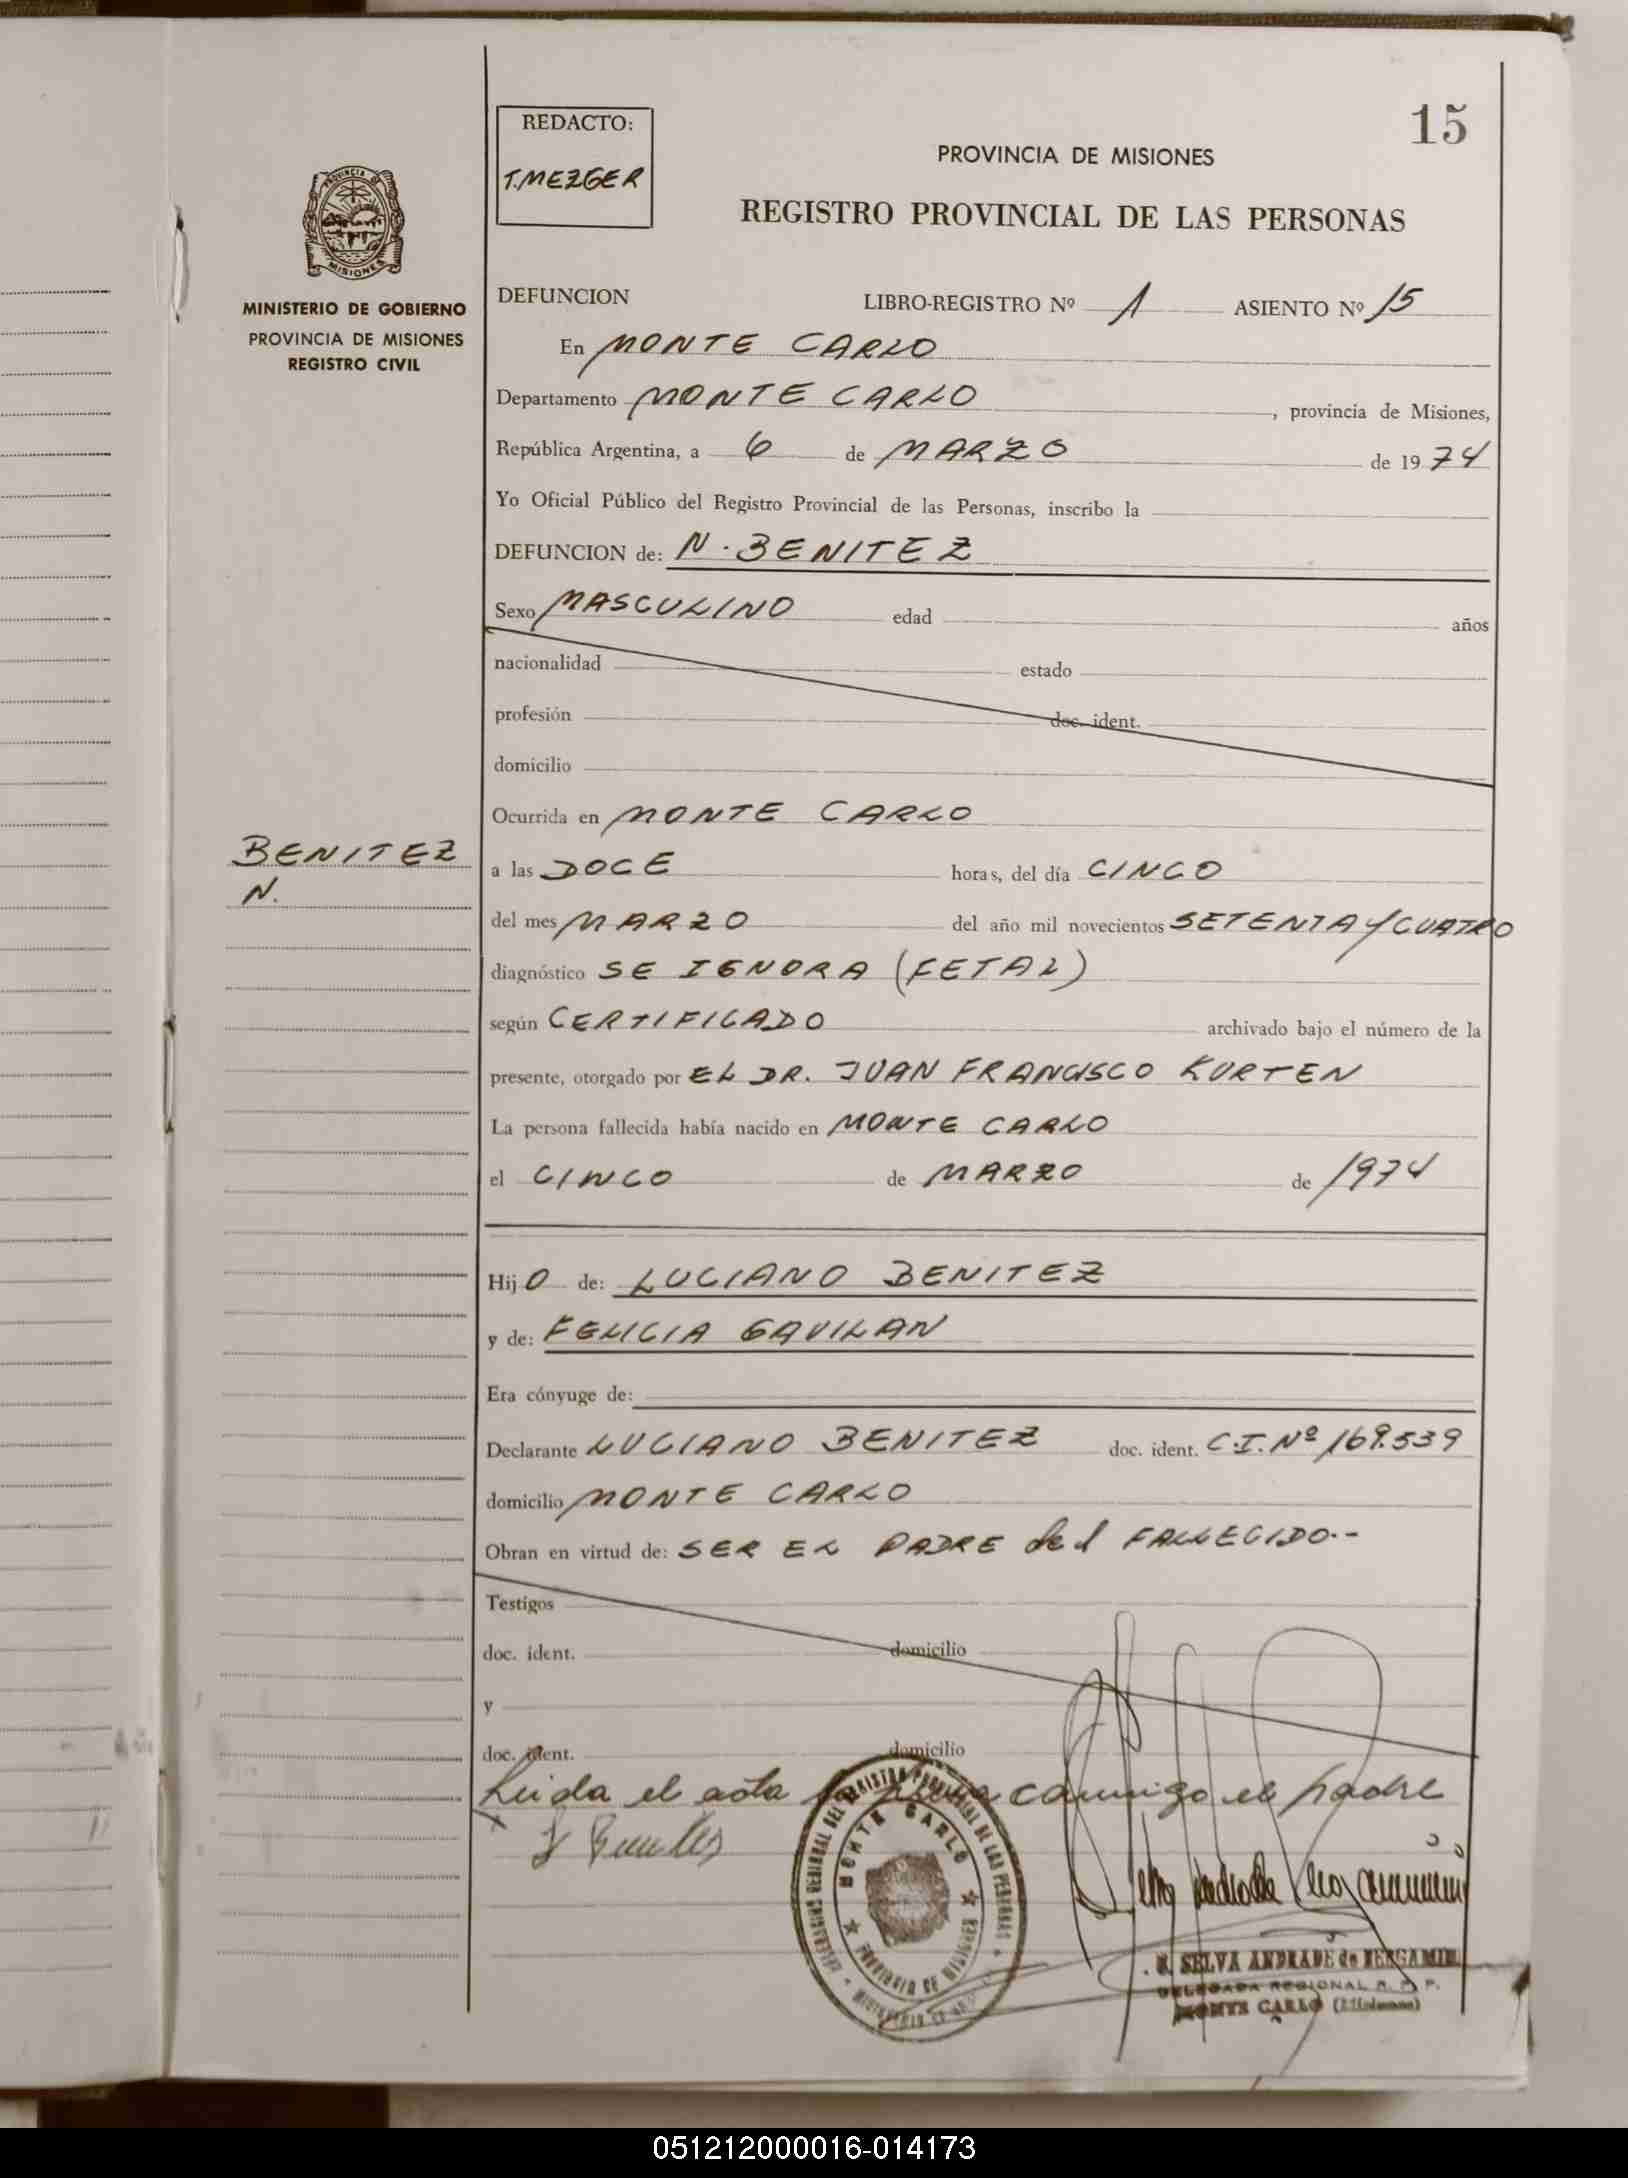 15
REDACTO:
T. MEZGER
PROVINCIA DE MISIONES
REGISTRO PROVINCIAL DE LAS PERSONAS
PROVINCIA DE
MISIONES
MINISTERIO DE GOBIERNO
PROVINCIA DE MISIONES
REGISTRO CIVIL
DEFUNCION LIBRO-REGISTRO Nº 1 ASIENTO Nº 15
En MONTE CARLO
Departamento MONTE CARLO, provincia de Misiones,
República Argentina, a 6 de MARZO de 1974
Yo Oficial Público del Registro Provincial de las Personas, inscribo la
DEFUNCION de: N. BENITEZ
Sexo MASCULINO edad años
nacionalidad estado
profesión doc. ident.
domicilio
Ocurrida en MONTE CARLO
BENITEZ
N.
a las DOCE horas, del día CINCO
del mes MARZO del año mil novecientos SETENTA Y CUATRO
diagnóstico SE IGNORA (FETAL)
según CERTIFICADO archivado bajo el número de la
presente, otorgado por EL DR. JUAN FRANCISCO KURTEN
La persona fallecida había nacido en MONTE CARLO
el CINCO de MARZO de 1974
Hij O de: LUCIANO BENITEZ
y de: FELICIA GAVILAN
Era cónyuge de:
Declarante LUCIANO BENITEZ doc. ident. C.I. Nº 169.539
domicilio MONTE CARLO
Obran en virtud de: SER EL PADRE del FALLECIDO.--
Testigos
doc. ident. domicilio
y
doc. ident. domicilio
Leida el acta la firma conmigo el padre
MONTE CARLO
PROVINCIA DE MISIONES
SELVA ANDRADE de BERGAMIN
DELEGADA REGIONAL R. P. P.
MONTE CARLO (Misiones)
051212000016-014173